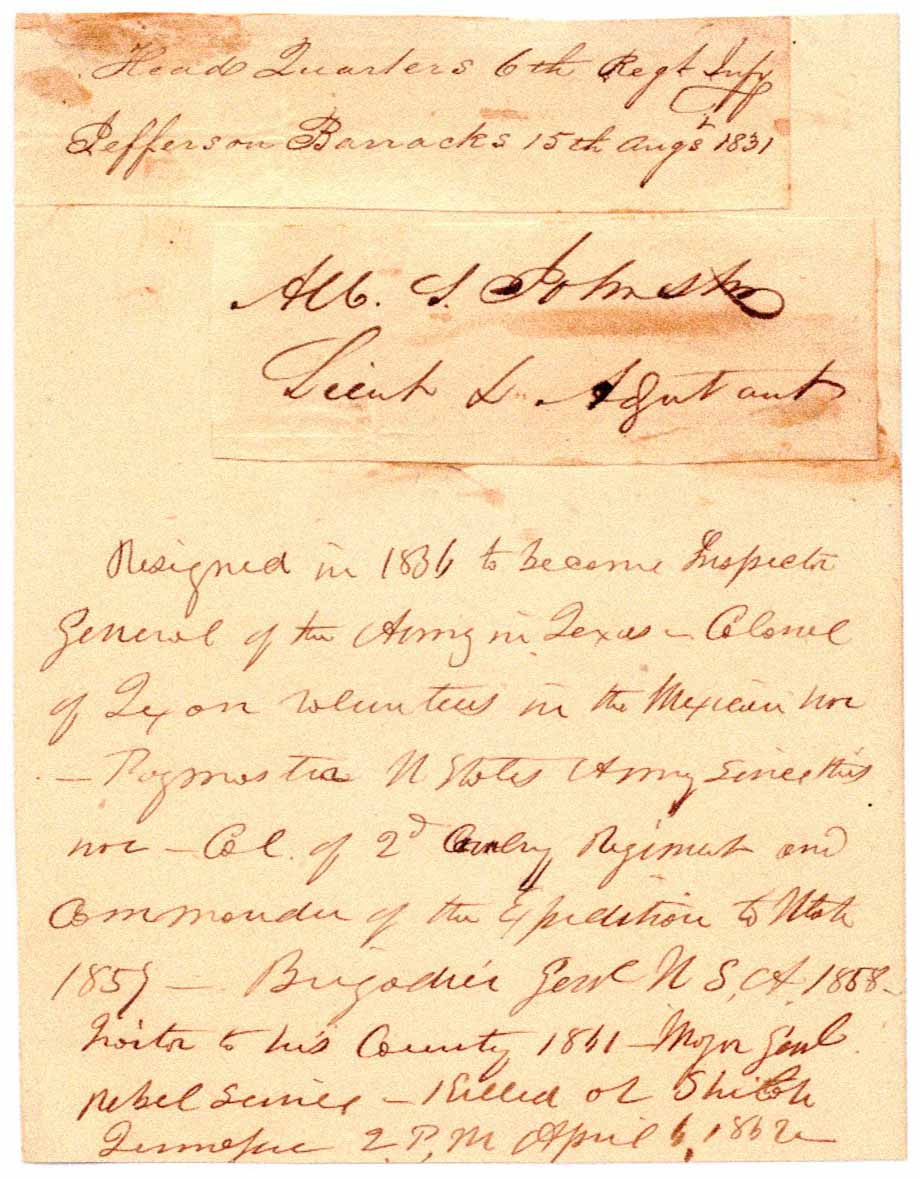 Head Quarters 6th Regt Infy
Jefferson Barracks 15th Augst 1831
Alb. S. Johnston
Lieut & Adjutant
Resigned in 1836 to become Inspector
General of the Army in Texas – Colonel
of Texan volunteers in the Mexican war
– Paymaster U States Army since this
war – Col. of 2d Cavalry Regiment and
Commander of the Expedition to Utah
1857 – Brigadier Genl U.S.A. 1858 –
traitor to his Country 1861 – Major Genl
rebel service – Killed at Shiloh
Tennessee 2 P.M. April 6, 1862